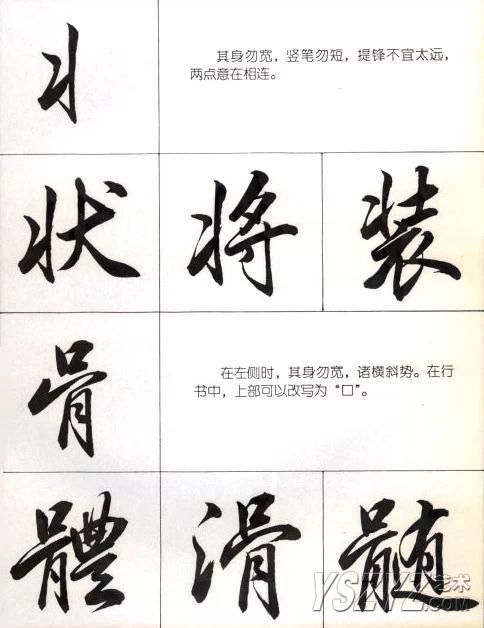 丬
其身勿宽，竖笔勿短，提锋不宜太远，
两点意在相连。
状 将 装
骨
在左侧时，其身勿宽，诸横斜势。在行
书中，上部可以改写为“口”。
體 滑 髓
YSZYZ艺术
.com